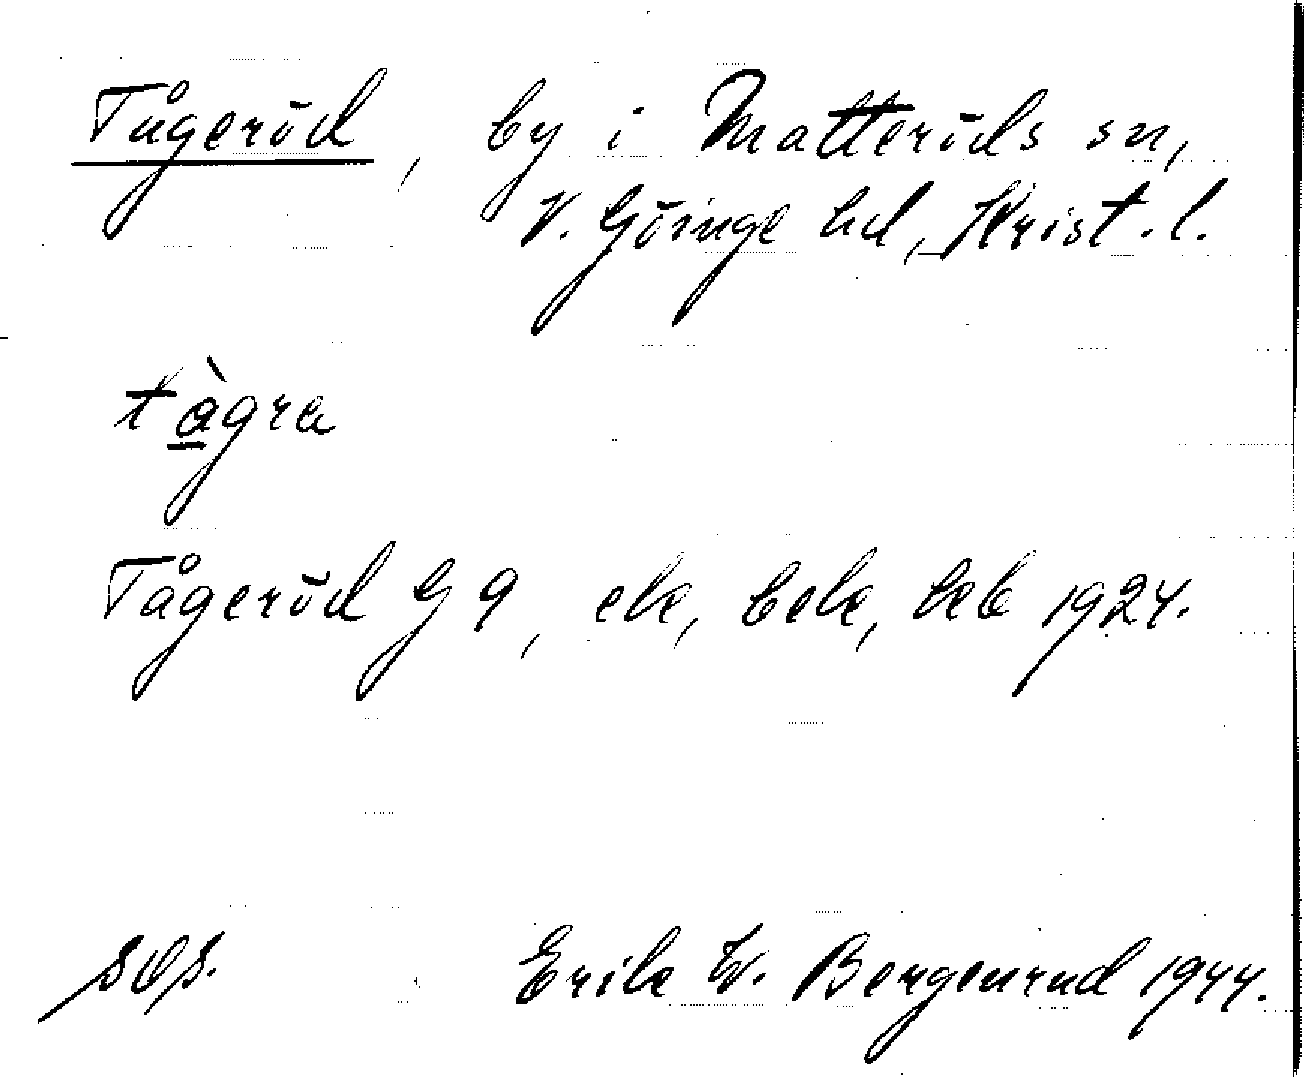 Tågeröd, by i Matteröds sn,
V. Göinge hd, Krist. l.
tàgra
Tågeröd G 9, ek, bek, heb 1924.
sds.
Erik W. Bergenrud 1944.